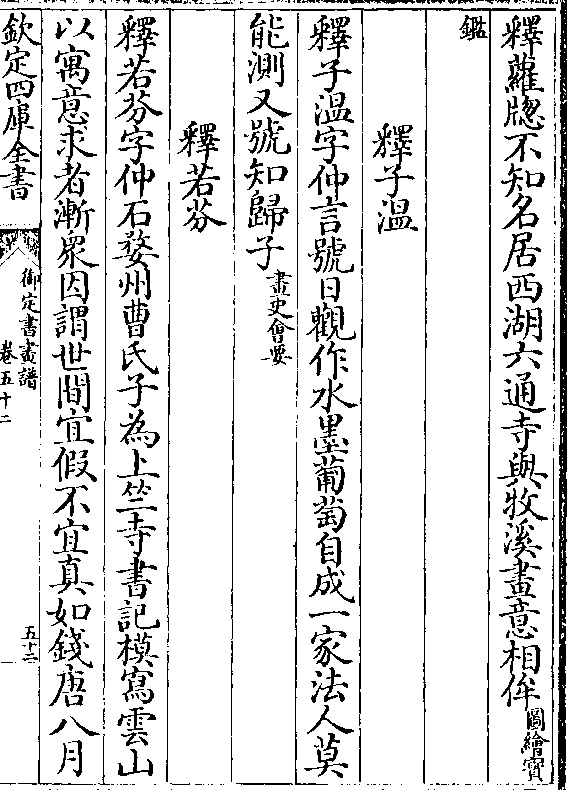 釋蘿牕不知名居西湖六通寺與牧溪畫意相侔圖繪寳
鑑
釋子溫
釋子溫字仲言號日觀作水墨葡萄自成一家法人莫
能測又號知歸子畫史會要
釋若芬
釋若芬字仲石婺州曹氏子為上竺寺書記模寫雲山
以寓意求者漸衆因謂世間宜假不宜真如錢唐八月
欽定四庫全書
御定書畫譜
卷五十二
五十二